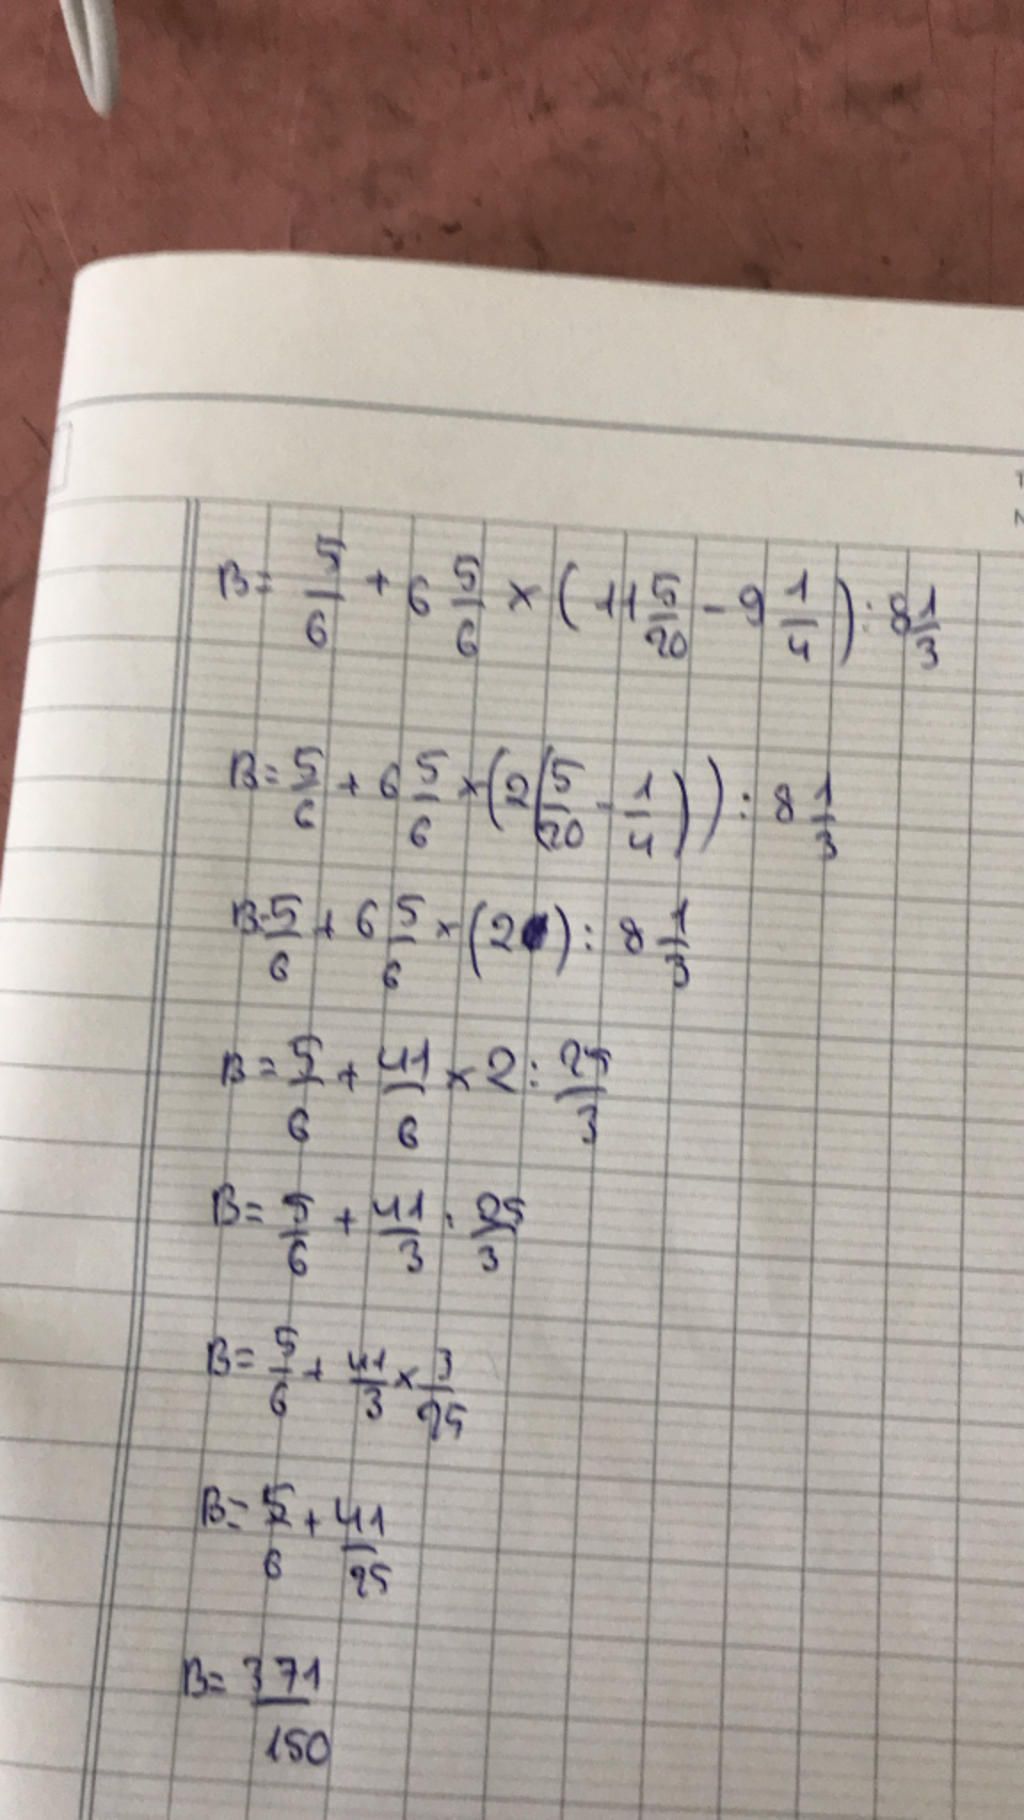 B = 5/6 + 6 5/6 × (11 5/20 - 9 1/4) : 8 1/3
B = 5/6 + 6 5/6 × (2(5/20 - 1/4)) : 8 1/3
B = 5/6 + 6 5/6 × (2) : 8 1/3
B = 5/6 + 41/6 × 2 : 25/3
B = 5/6 + 41/3 : 25/3
B = 5/6 + 41/3 × 3/25
B = 5/6 + 41/25
B = 371/150